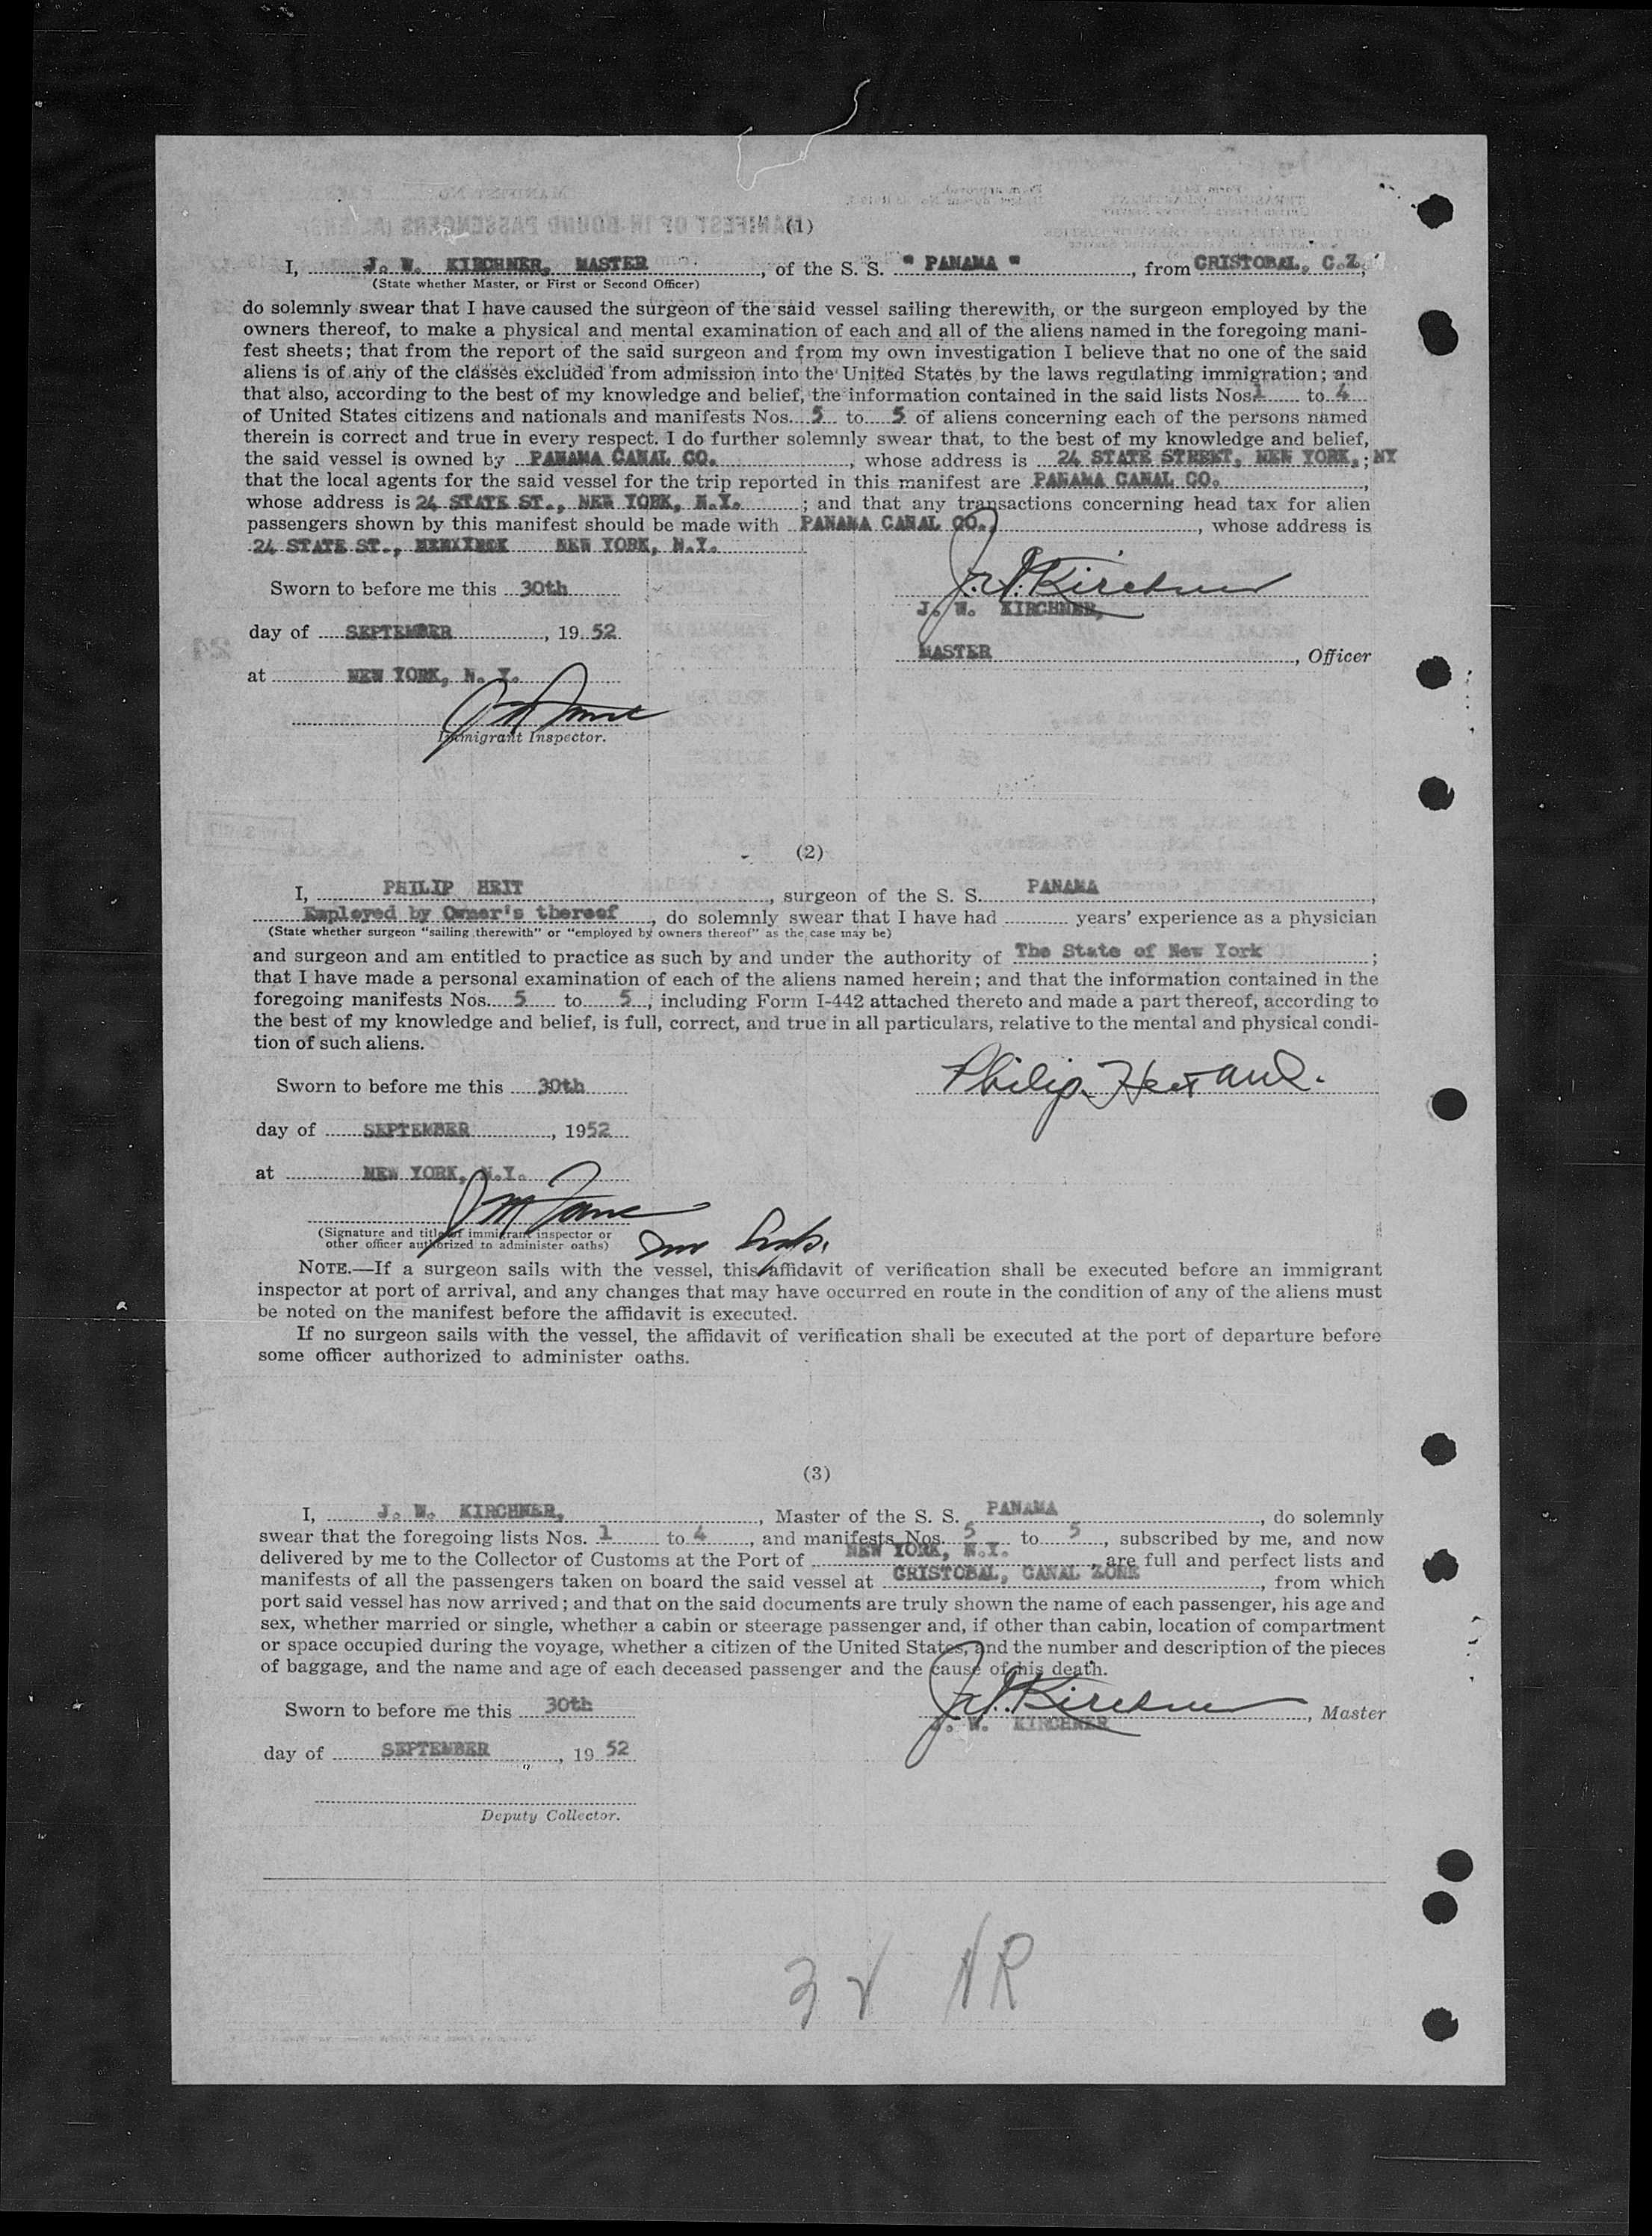 (1)
I, J. W. KIRCHNER, MASTER, of the S. S. " PANAMA ", from CRISTOBAL, C.Z,
(State whether Master, or First or Second Officer)
do solemnly swear that I have caused the surgeon of the said vessel sailing therewith, or the surgeon employed by the
owners thereof, to make a physical and mental examination of each and all of the aliens named in the foregoing mani-
fest sheets; that from the report of the said surgeon and from my own investigation I believe that no one of the said
aliens is of any of the classes excluded from admission into the United States by the laws regulating immigration; and
that also, according to the best of my knowledge and belief, the information contained in the said lists Nos. 1 to 4
of United States citizens and nationals and manifests Nos. 5 to 5 of aliens concerning each of the persons named
therein is correct and true in every respect. I do further solemnly swear that, to the best of my knowledge and belief,
the said vessel is owned by PANAMA CANAL CO., whose address is 24 STATE STREET, NEW YORK,; NY
that the local agents for the said vessel for the trip reported in this manifest are PANAMA CANAL CO.,
whose address is 24 STATE ST., NEW YORK, N.Y.; and that any transactions concerning head tax for alien
passengers shown by this manifest should be made with PANAMA CANAL CO., whose address is
24 STATE ST., NEW YORK, N.Y.
Sworn to before me this 30th
J. W. Kirchner
J. W. KIRCHNER,
day of SEPTEMBER, 19 52
MASTER, Officer
at NEW YORK, N. Y.
Immigrant Inspector.
(2)
I, PHILIP HEIT, surgeon of the S. S. PANAMA,
Employed by Owner's thereof, do solemnly swear that I have had years' experience as a physician
(State whether surgeon "sailing therewith" or "employed by owners thereof" as the case may be)
and surgeon and am entitled to practice as such by and under the authority of The State of New York;
that I have made a personal examination of each of the aliens named herein; and that the information contained in the
foregoing manifests Nos. 5 to 5, including Form I-442 attached thereto and made a part thereof, according to
the best of my knowledge and belief, is full, correct, and true in all particulars, relative to the mental and physical condi-
tion of such aliens.
Philip Heit
Sworn to before me this 30th
day of SEPTEMBER, 1952
at NEW YORK, N.Y.
(Signature and title of immigrant inspector or
other officer authorized to administer oaths)
NOTE.—If a surgeon sails with the vessel, this affidavit of verification shall be executed before an immigrant
inspector at port of arrival, and any changes that may have occurred en route in the condition of any of the aliens must
be noted on the manifest before the affidavit is executed.
If no surgeon sails with the vessel, the affidavit of verification shall be executed at the port of departure before
some officer authorized to administer oaths.
(3)
I, J. W. KIRCHNER,, Master of the S. S. PANAMA, do solemnly
swear that the foregoing lists Nos. 1 to 4, and manifests Nos. 5 to 5, subscribed by me, and now
delivered by me to the Collector of Customs at the Port of NEW YORK, N.Y., are full and perfect lists and
manifests of all the passengers taken on board the said vessel at CRISTOBAL, CANAL ZONE, from which
port said vessel has now arrived; and that on the said documents are truly shown the name of each passenger, his age and
sex, whether married or single, whether a cabin or steerage passenger and, if other than cabin, location of compartment
or space occupied during the voyage, whether a citizen of the United States, and the number and description of the pieces
of baggage, and the name and age of each deceased passenger and the cause of his death.
Sworn to before me this 30th
J. W. Kirchner, Master
J. W. KIRCHNER
day of SEPTEMBER, 19 52
Deputy Collector.
NR